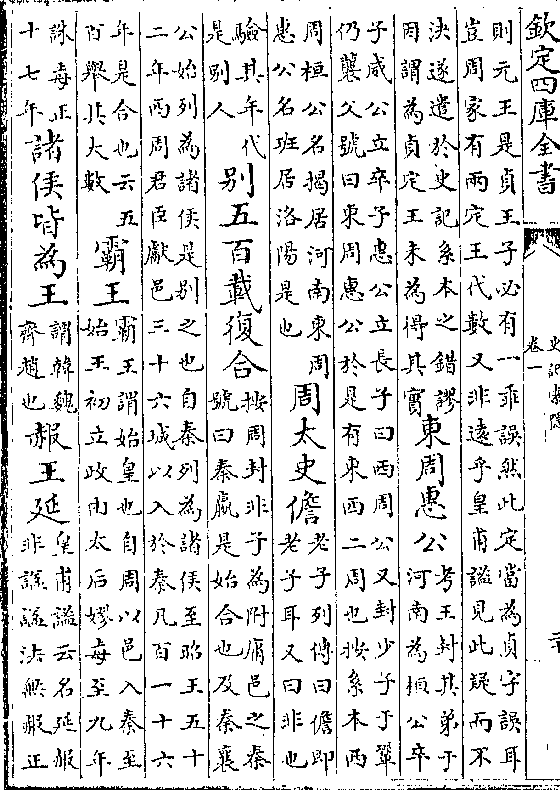 欽定四庫全書
史記索隱
卷一
二十
則元王是貞王子必有一乖誤然此定當為貞字誤耳
豈周家有兩定王代數又非遠乎皇甫謐見此疑而不
決遂遣於史記系本之錯謬
因謂為貞定王未為得其實
東周惠公
考王封其弟于
河南為桓公卒
子威公立卒子惠公立長子曰西周公又封少子于鞏
仍襲父號曰東周惠公於是有東西二周也按系本西
周桓公名揭居河南東周
惠公名班居洛陽是也
周太史儋
老子列傳曰儋即
老子耳又曰非也
驗其年代
是別人
别五百載復合
按周封非子為附庸邑之秦
號曰秦嬴是始合也及秦襄
公始列為諸侯是别之也自秦列為諸侯至昭王五十
二年西周君臣獻邑三十六城以入於秦凡百一十六
年是合也云五
百舉其大數
霸王
霸王謂始皇也自周以邑入秦至
始王初立政由太后嫪毐至九年
誅毐正
十七年
諸侯皆為王
謂韓魏
齊趙也
赧王延
皇甫謐云名延赧
非謚謚法無赧正